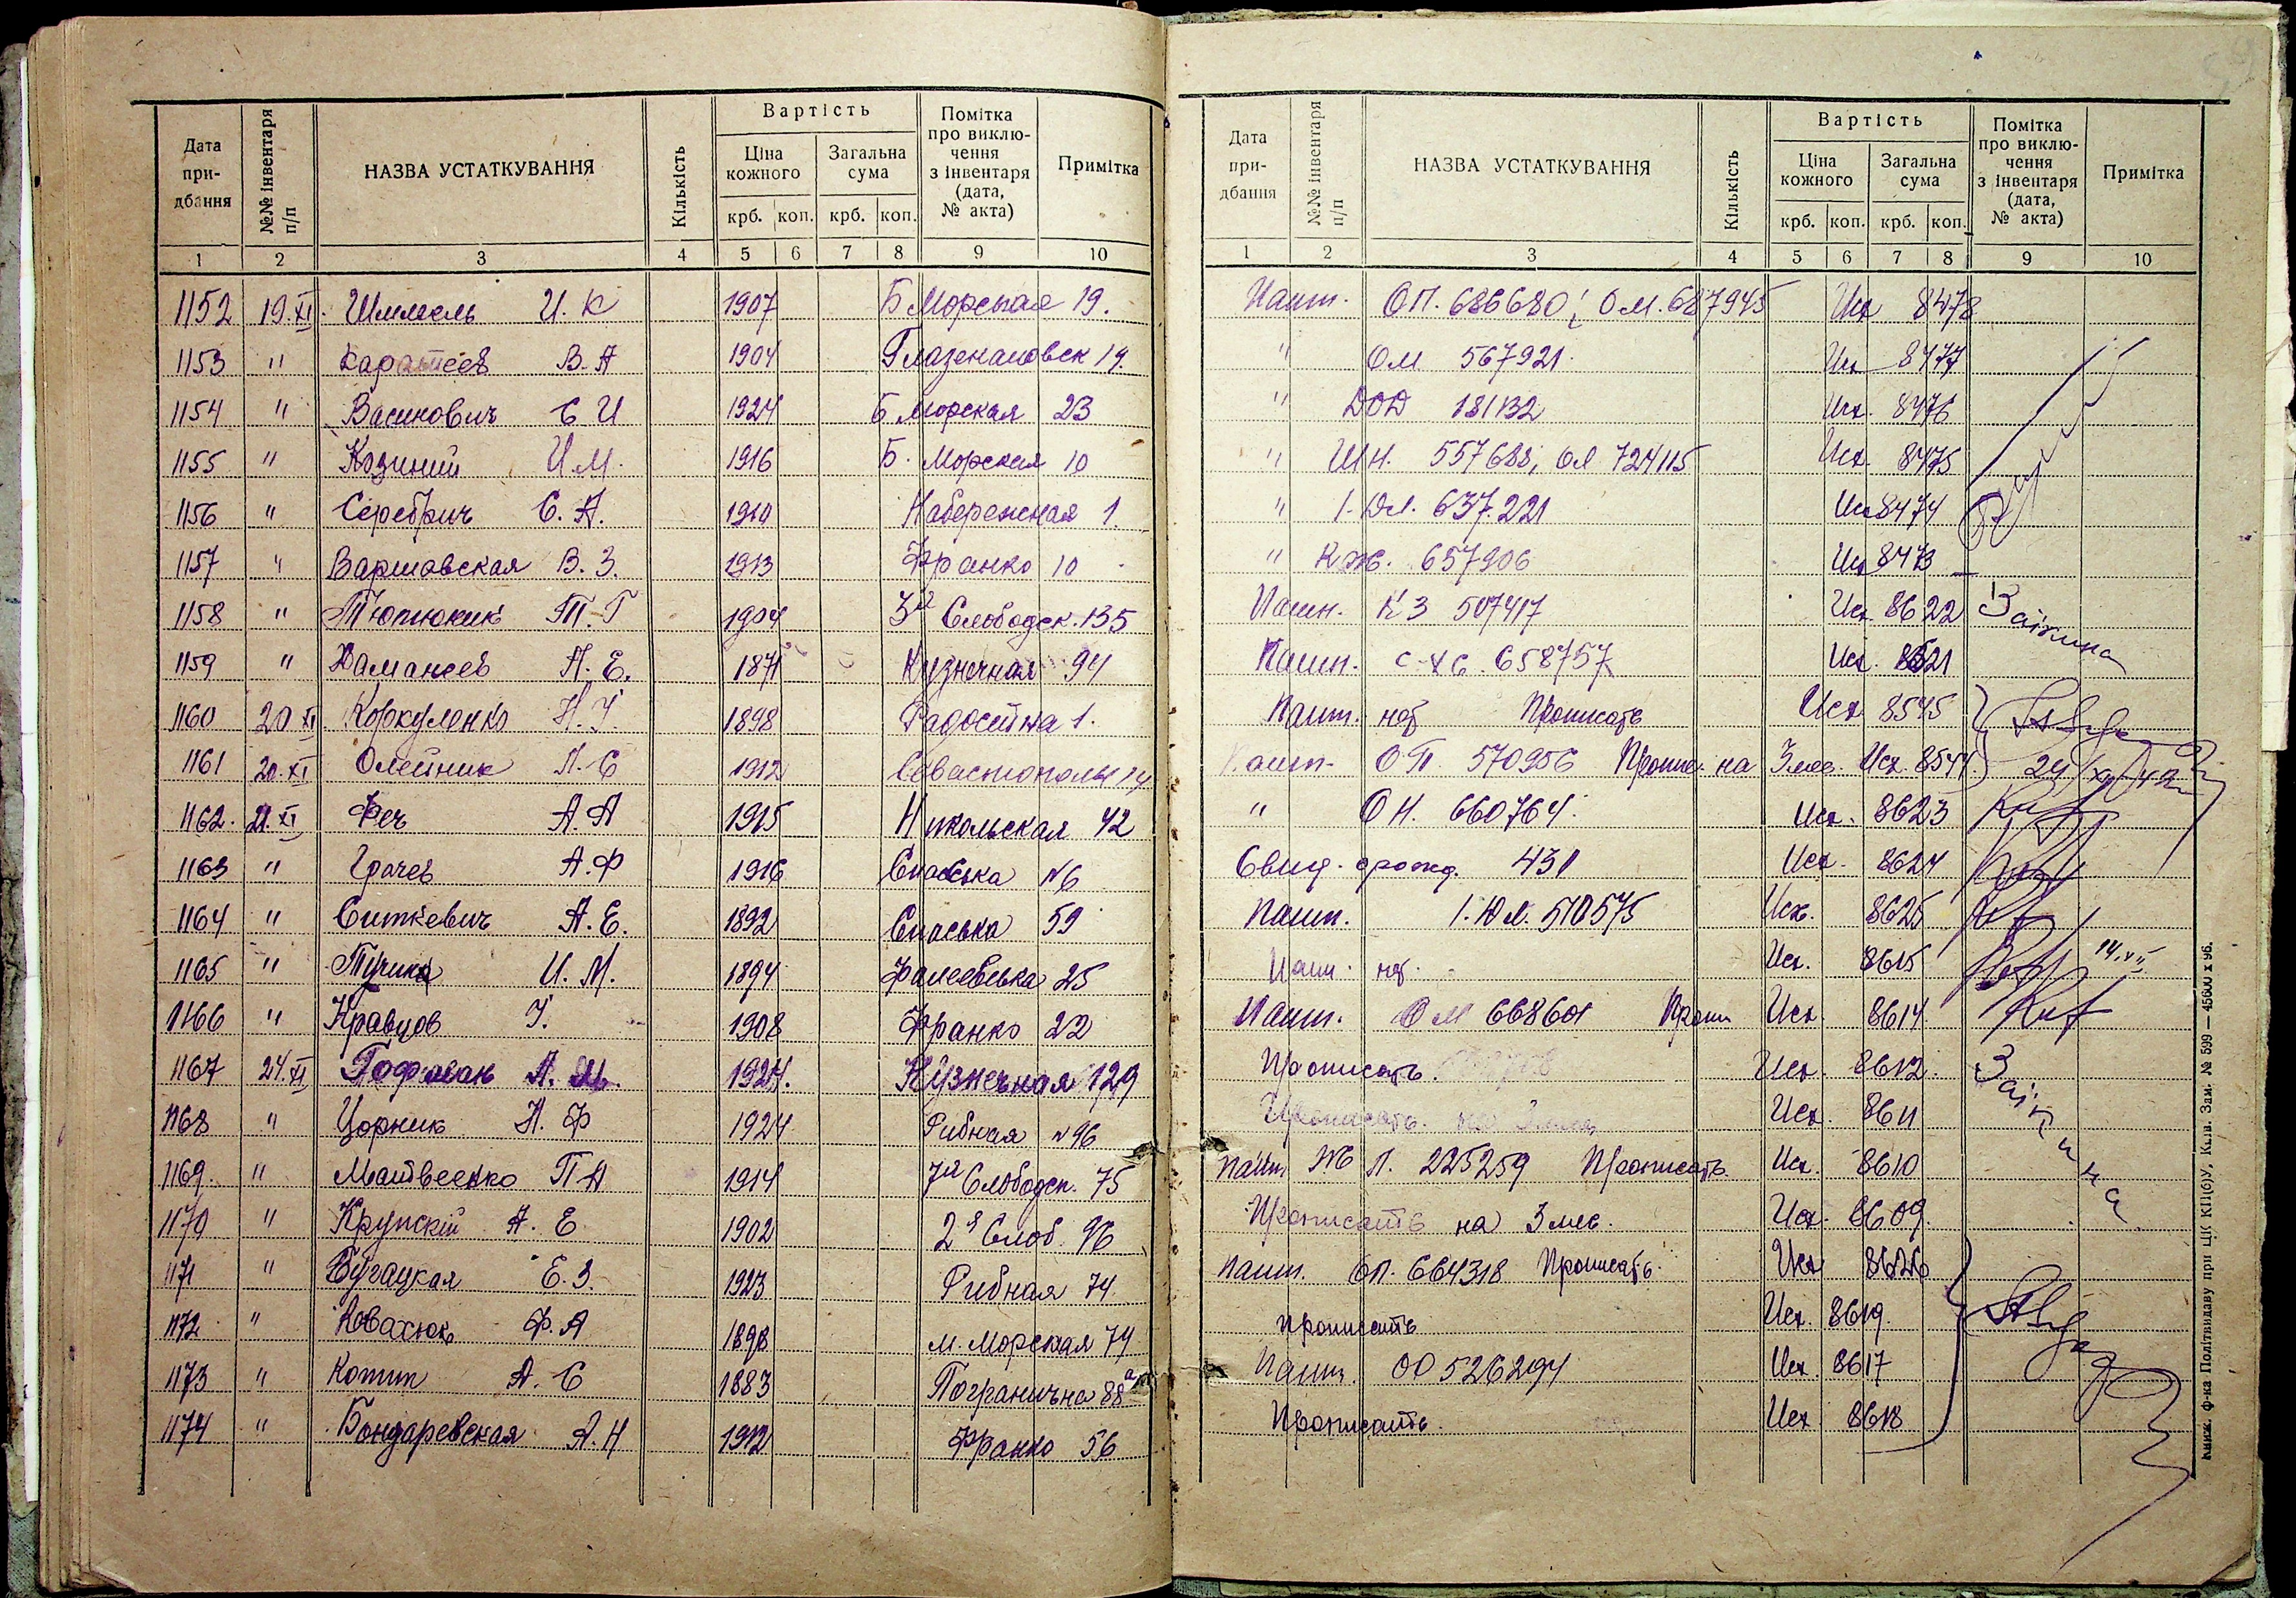 Дата при-дбання №№ інвентаря п/п НАЗВА УСТАТКУВАННЯ Кількість Вартість Ціна кожного крб. коп. Загальна сума крб. коп. Помітка про виклю-чення з інвентаря (дата, № акта) Примітка
1 2 3 4 5 6 7 8 9 10
1152 19.XI. Шимель И. К 1907 Б Морская 19.
1153 " Каратеев В. А 1904 Глазенаповск 19.
1154 " Васинович С И 1924 Б Морская 23
1155 " Козиний И. М. 1916 Б. Морская 10
1156 " Серебрич С. А. 1910 Набережная 1.
1157 " Варшавская В. З. 1913 Франко 10
1158 " Тютюник Т. Г 1904 3я Слободск. 135
1159 " А. Е. 1871 Кузнечная 94
1160 20 XI Коркуленко 1898 Радостна 1.
1161 20.XI Олейник Л. С 1912 Севастополь 14
1162. 21.XI Феч А. А 1915 Никольская 42
1163 " Грачев А. Ф 1916 Спасська №6
1164 " Ситкевич А. Е. 1892 Спаська 59
1165 " И. М. 1894 Фалеевська 25
1166 " Кравцов 1908 Франко 22
1167 24.XI Гофман А. 1924. Кузнечная 129
1168 " Цорник Н. Ф 1924 Рибная №96
1169. " Матвеенко П А 1914 7я Слободск. 75
1170 " Крупскій А. Е 1902 2я Слоб 96
1171 " Бугацкая Е. З. 1923 Рибная 74.
1172 " Ф. А 1898 М. Морская 74
1173 " Котт А. С 1883 Погранична 88а
1174 " Бондаревская А. Н 1912 Франко 56
Дата при-дбання №№ інвентаря п/п НАЗВА УСТАТКУВАННЯ Кількість Вартість Ціна кожного крб. коп. Загальна сума крб. коп. Помітка про виклю-чення з інвентаря (дата, № акта) Примітка
1 2 3 4 5 6 7 8 9 10
Пашп. ОП. 686680; ОМ. 687945 Исх 8478
" ОМ 567921. Исх 8477
" 181132 Исх. 8476
" ШН. 557688; ОЛ 724115 Исх. 8475
" 1-ЮЛ. 637.221 Исх 8474
" КЖ. 657906 Исх 8473
Пашп. КЗ 507417 Исх. 8622 Заікина
Пашп. 658757 Исх. 8621
Пашп. нет Прописать Исх 8545
Пашп. ОП 570956 Пропис. на 3 мес. Исх. 8544
" ОН. 660764. Исх. 8623
Свид. о рожд. 431 Исх. 8624
Пашп. 1. ЮЛ. 510575 Исх. 8625
Пашп. нет. Исх. 8615
Пашп. ОМ 668601 Проп Исх. 8614
Прописать. Исх. 8612. Заікина.
Прописать Исх. 8611
Пашп ЖБ Л. 225259 Прописать. Исх. 8610
Прописать на 3 мес. Исх. 8609.
Пашп. 664318 Прописать. Исх 8626
прописать Исх. 8619.
Пашп. ОО 526294 Исх. 8617
Прописать. Исх 8618
Книж. ф-ка Політвидаву при ЦК КП(б)У, Київ. Зам. № 599 — 45600 х 96.